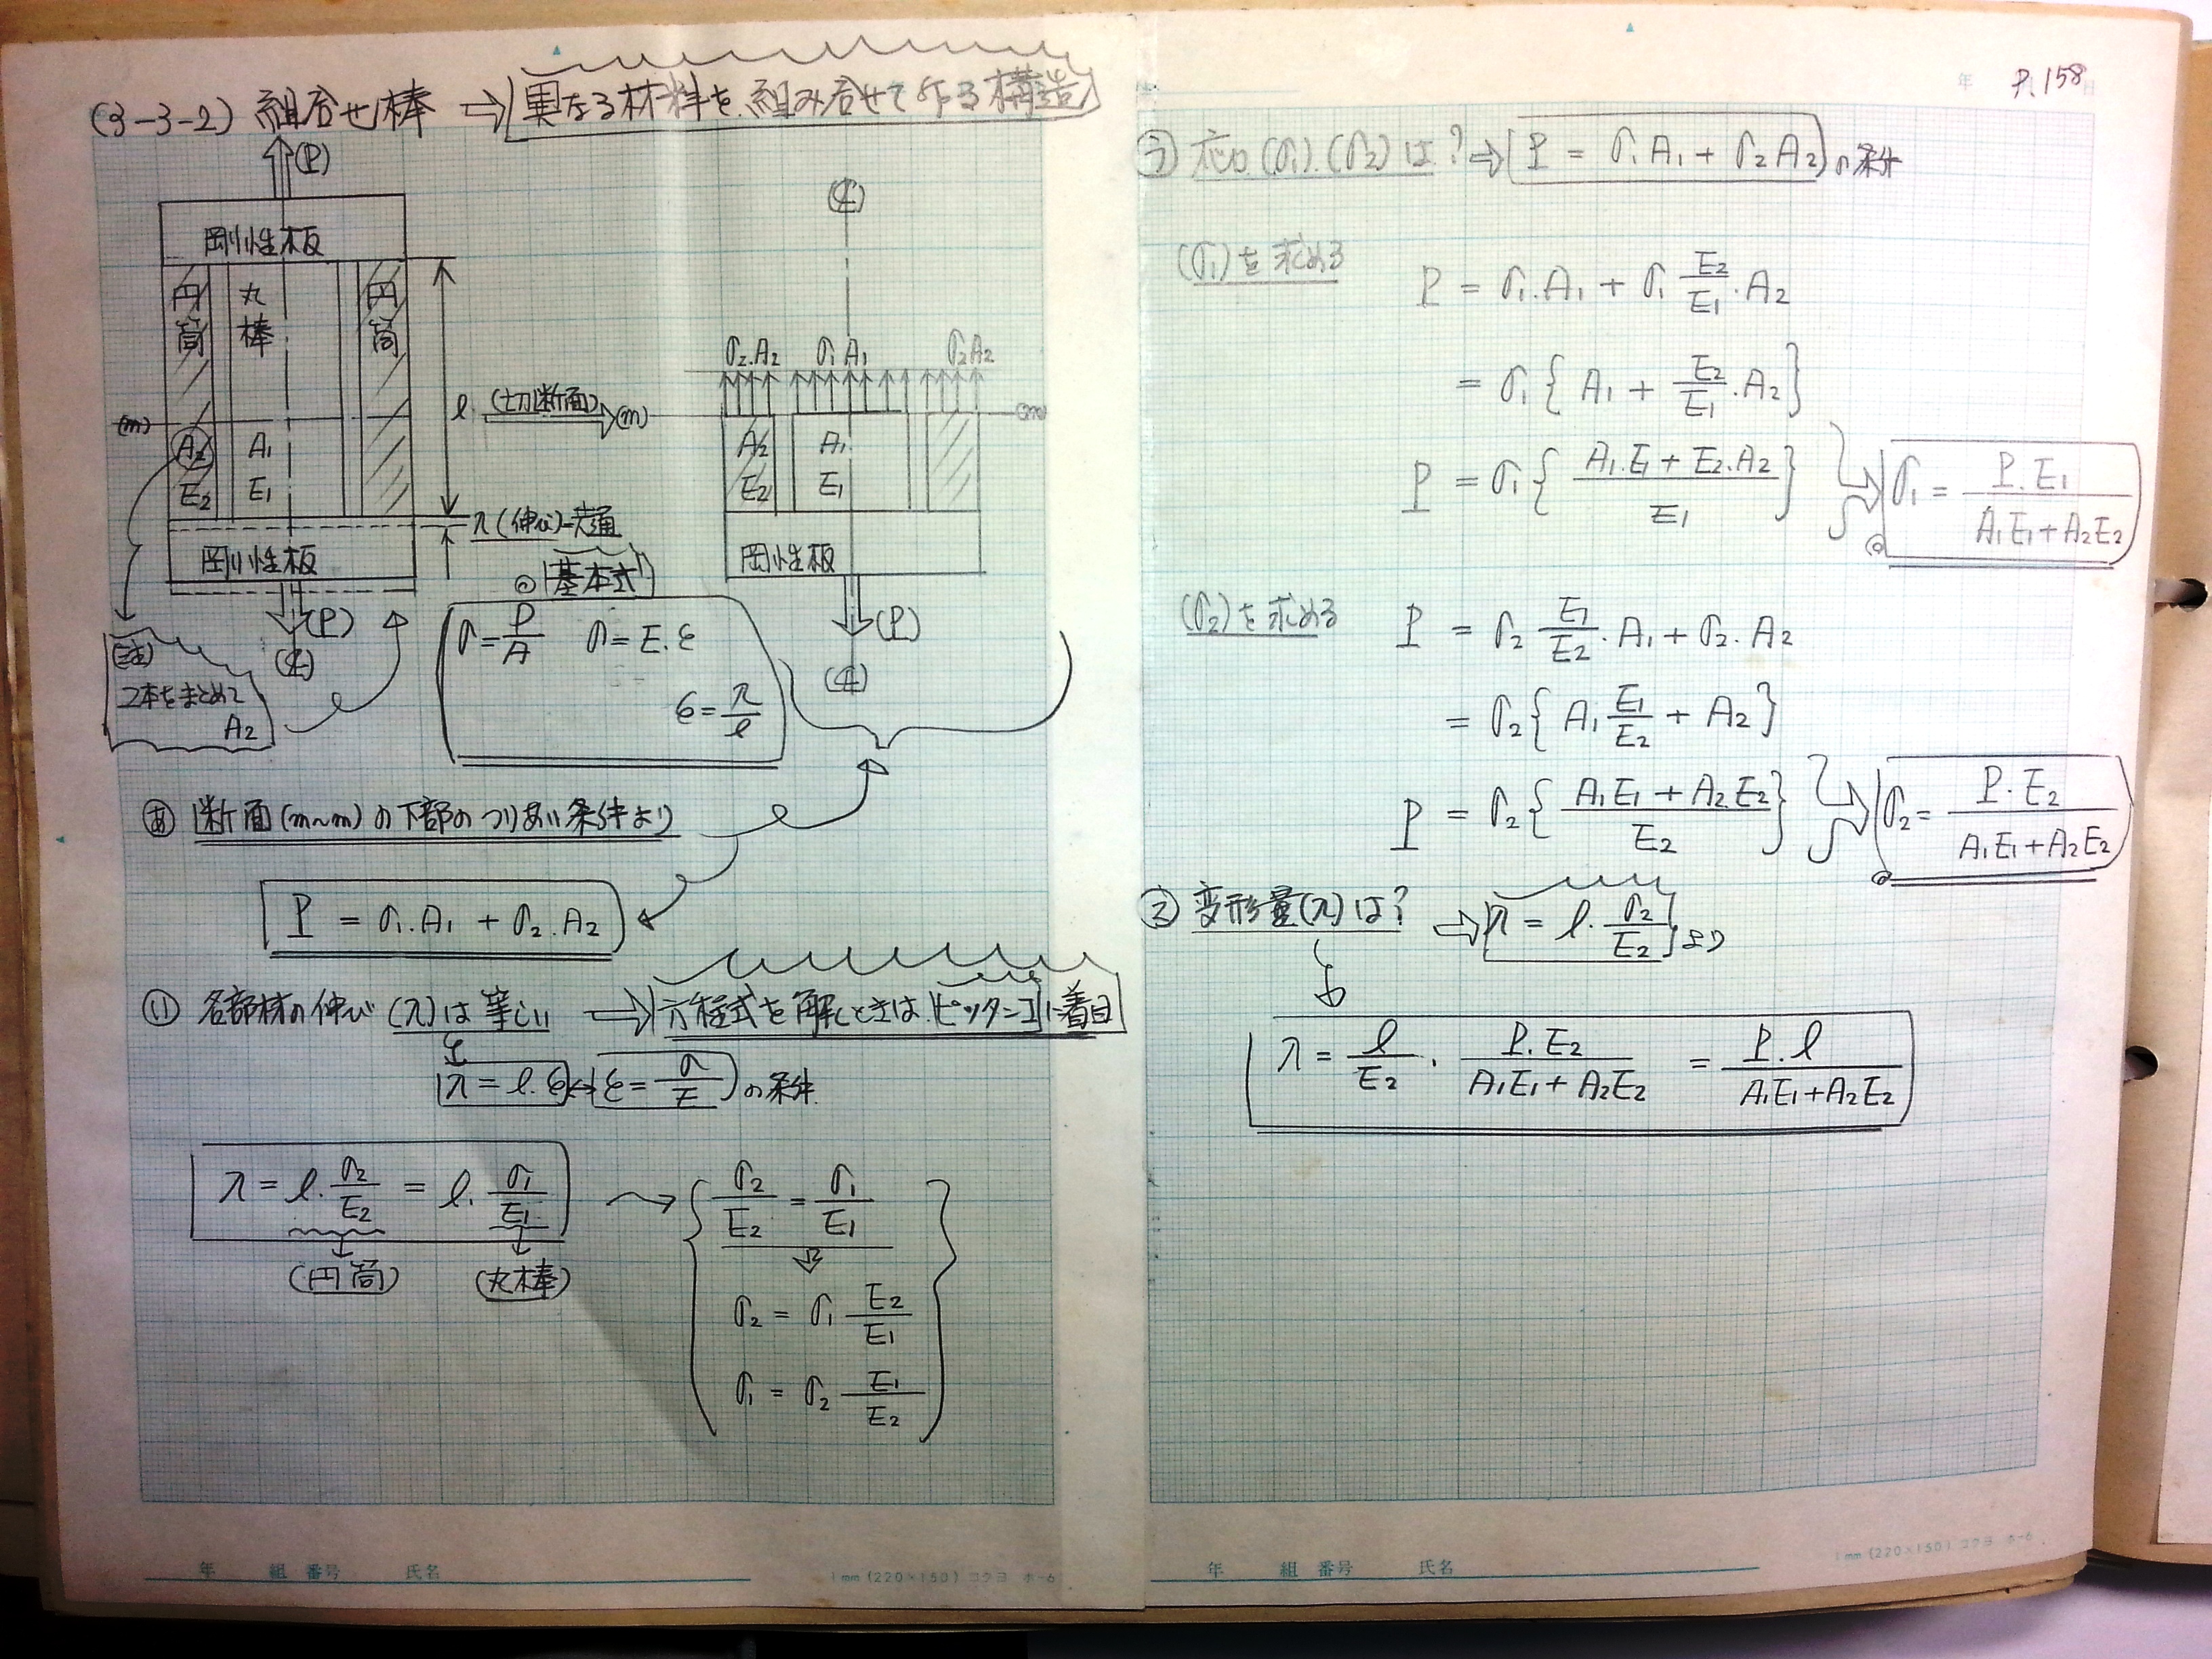 (3-3-2) 組合せ棒 ⇒ 異なる材料を組み合せて作る構造
(P)
剛性板
円筒
丸棒
円筒
(m)
A2
E2
A1
E1
l
λ(伸び)-共通
剛性板
(P)
(℄)
(註)
2本をまとめて
A2
(切断面)
(m)
(℄)
σ2.A2
σ1A1
σ2A2
(m)
A2
E2
A1
E1
剛性板
(P)
(℄)
◎基本式
σ=P/A σ=E.ε
ε=λ/l
あ 断面(m~m)の下部のつりあい条件より
P = σ1.A1 + σ2.A2
い 各部材の伸び(λ)は等しい ⇒ 方程式を解くときはピッタンコに着目
λ=l.ε ↔ ε=σ/E の条件
λ = l.σ2/E2 = l.σ1/E1
(円筒)
(丸棒)
σ2/E2 = σ1/E1
σ2 = σ1 E2/E1
σ1 = σ2 E1/E2
年 組 番号 氏名
1mm (220×150) コクヨ ホ-6
年
P.158
う 応力(σ1).(σ2)は? ⇒ P = σ1A1 + σ2A2 の条件
(σ1)を求める
P = σ1.A1 + σ1 E2/E1.A2
= σ1{A1 + E2/E1.A2}
P = σ1{(A1.E1 + E2.A2)/E1}
◎ σ1 = P.E1/(A1E1+A2E2)
(σ2)を求める
P = σ2 E1/E2.A1 + σ2.A2
= σ2{A1 E1/E2 + A2}
P = σ2{(A1E1 + A2E2)/E2}
◎ σ2 = P.E2/(A1E1+A2E2)
え 変形量(λ)は? ⇒ λ = l.σ2/E2 より
λ = l/E2 . P.E2/(A1E1+A2E2) = P.l/(A1E1+A2E2)
年 組 番号 氏名
1mm (220×150) コクヨ ホ-6